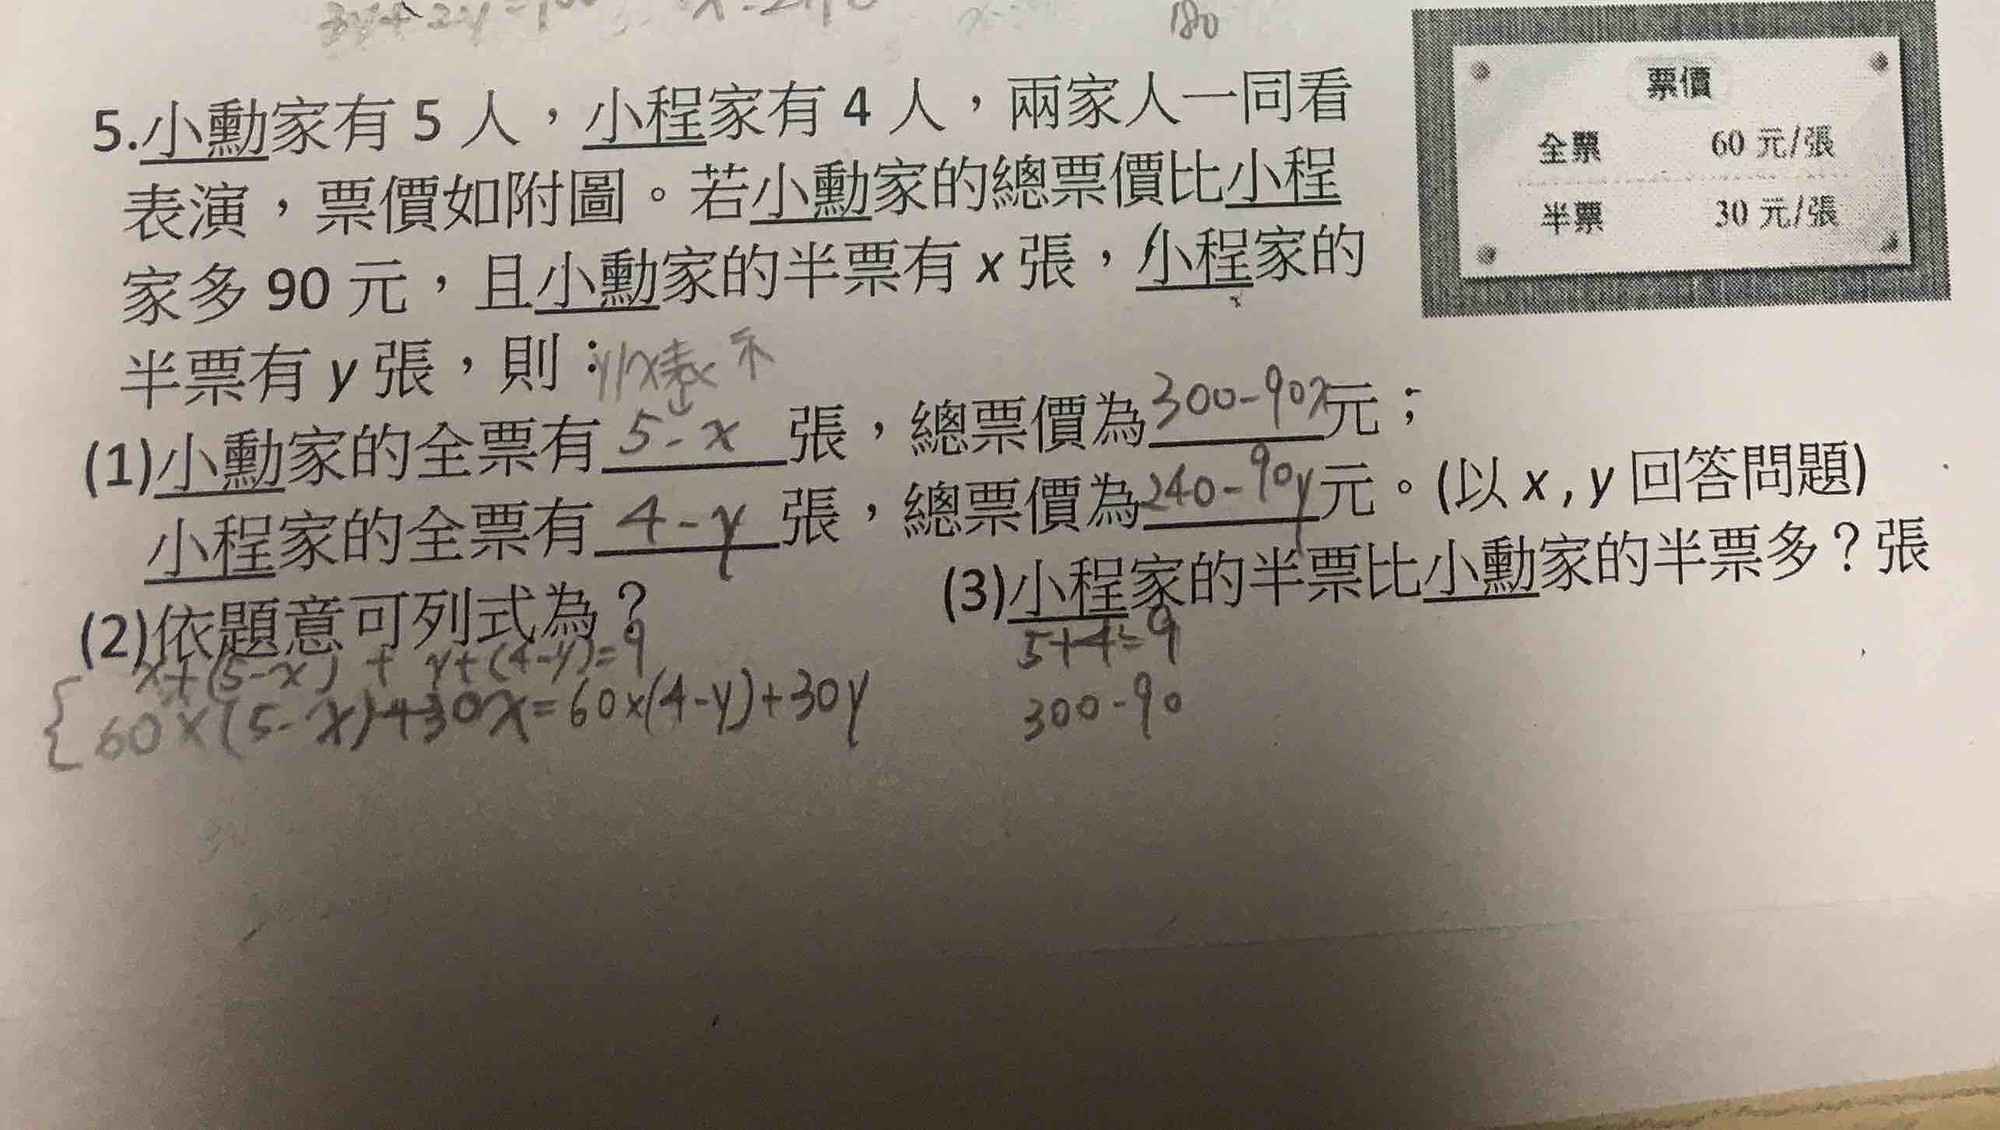 180
票價
全票 60 元/張
半票 30 元/張
5.小勳家有 5 人，小程家有 4 人，兩家人一同看
表演，票價如附圖。若小勳家的總票價比小程
家多 90 元，且小勳家的半票有 x 張，小程家的
半票有 y 張，則：
(1)小勳家的全票有 5-x 張，總票價為300-90x元；
小程家的全票有 4-y 張，總票價為240-90y元。(以 x , y 回答問題)
(2)依題意可列式為？ (3)小程家的半票比小勳家的半票多？張
x+(5-x) + y+(4-y)=9
60×(5-x)+30x=60×(4-y)+30y
5+4=9
300-90